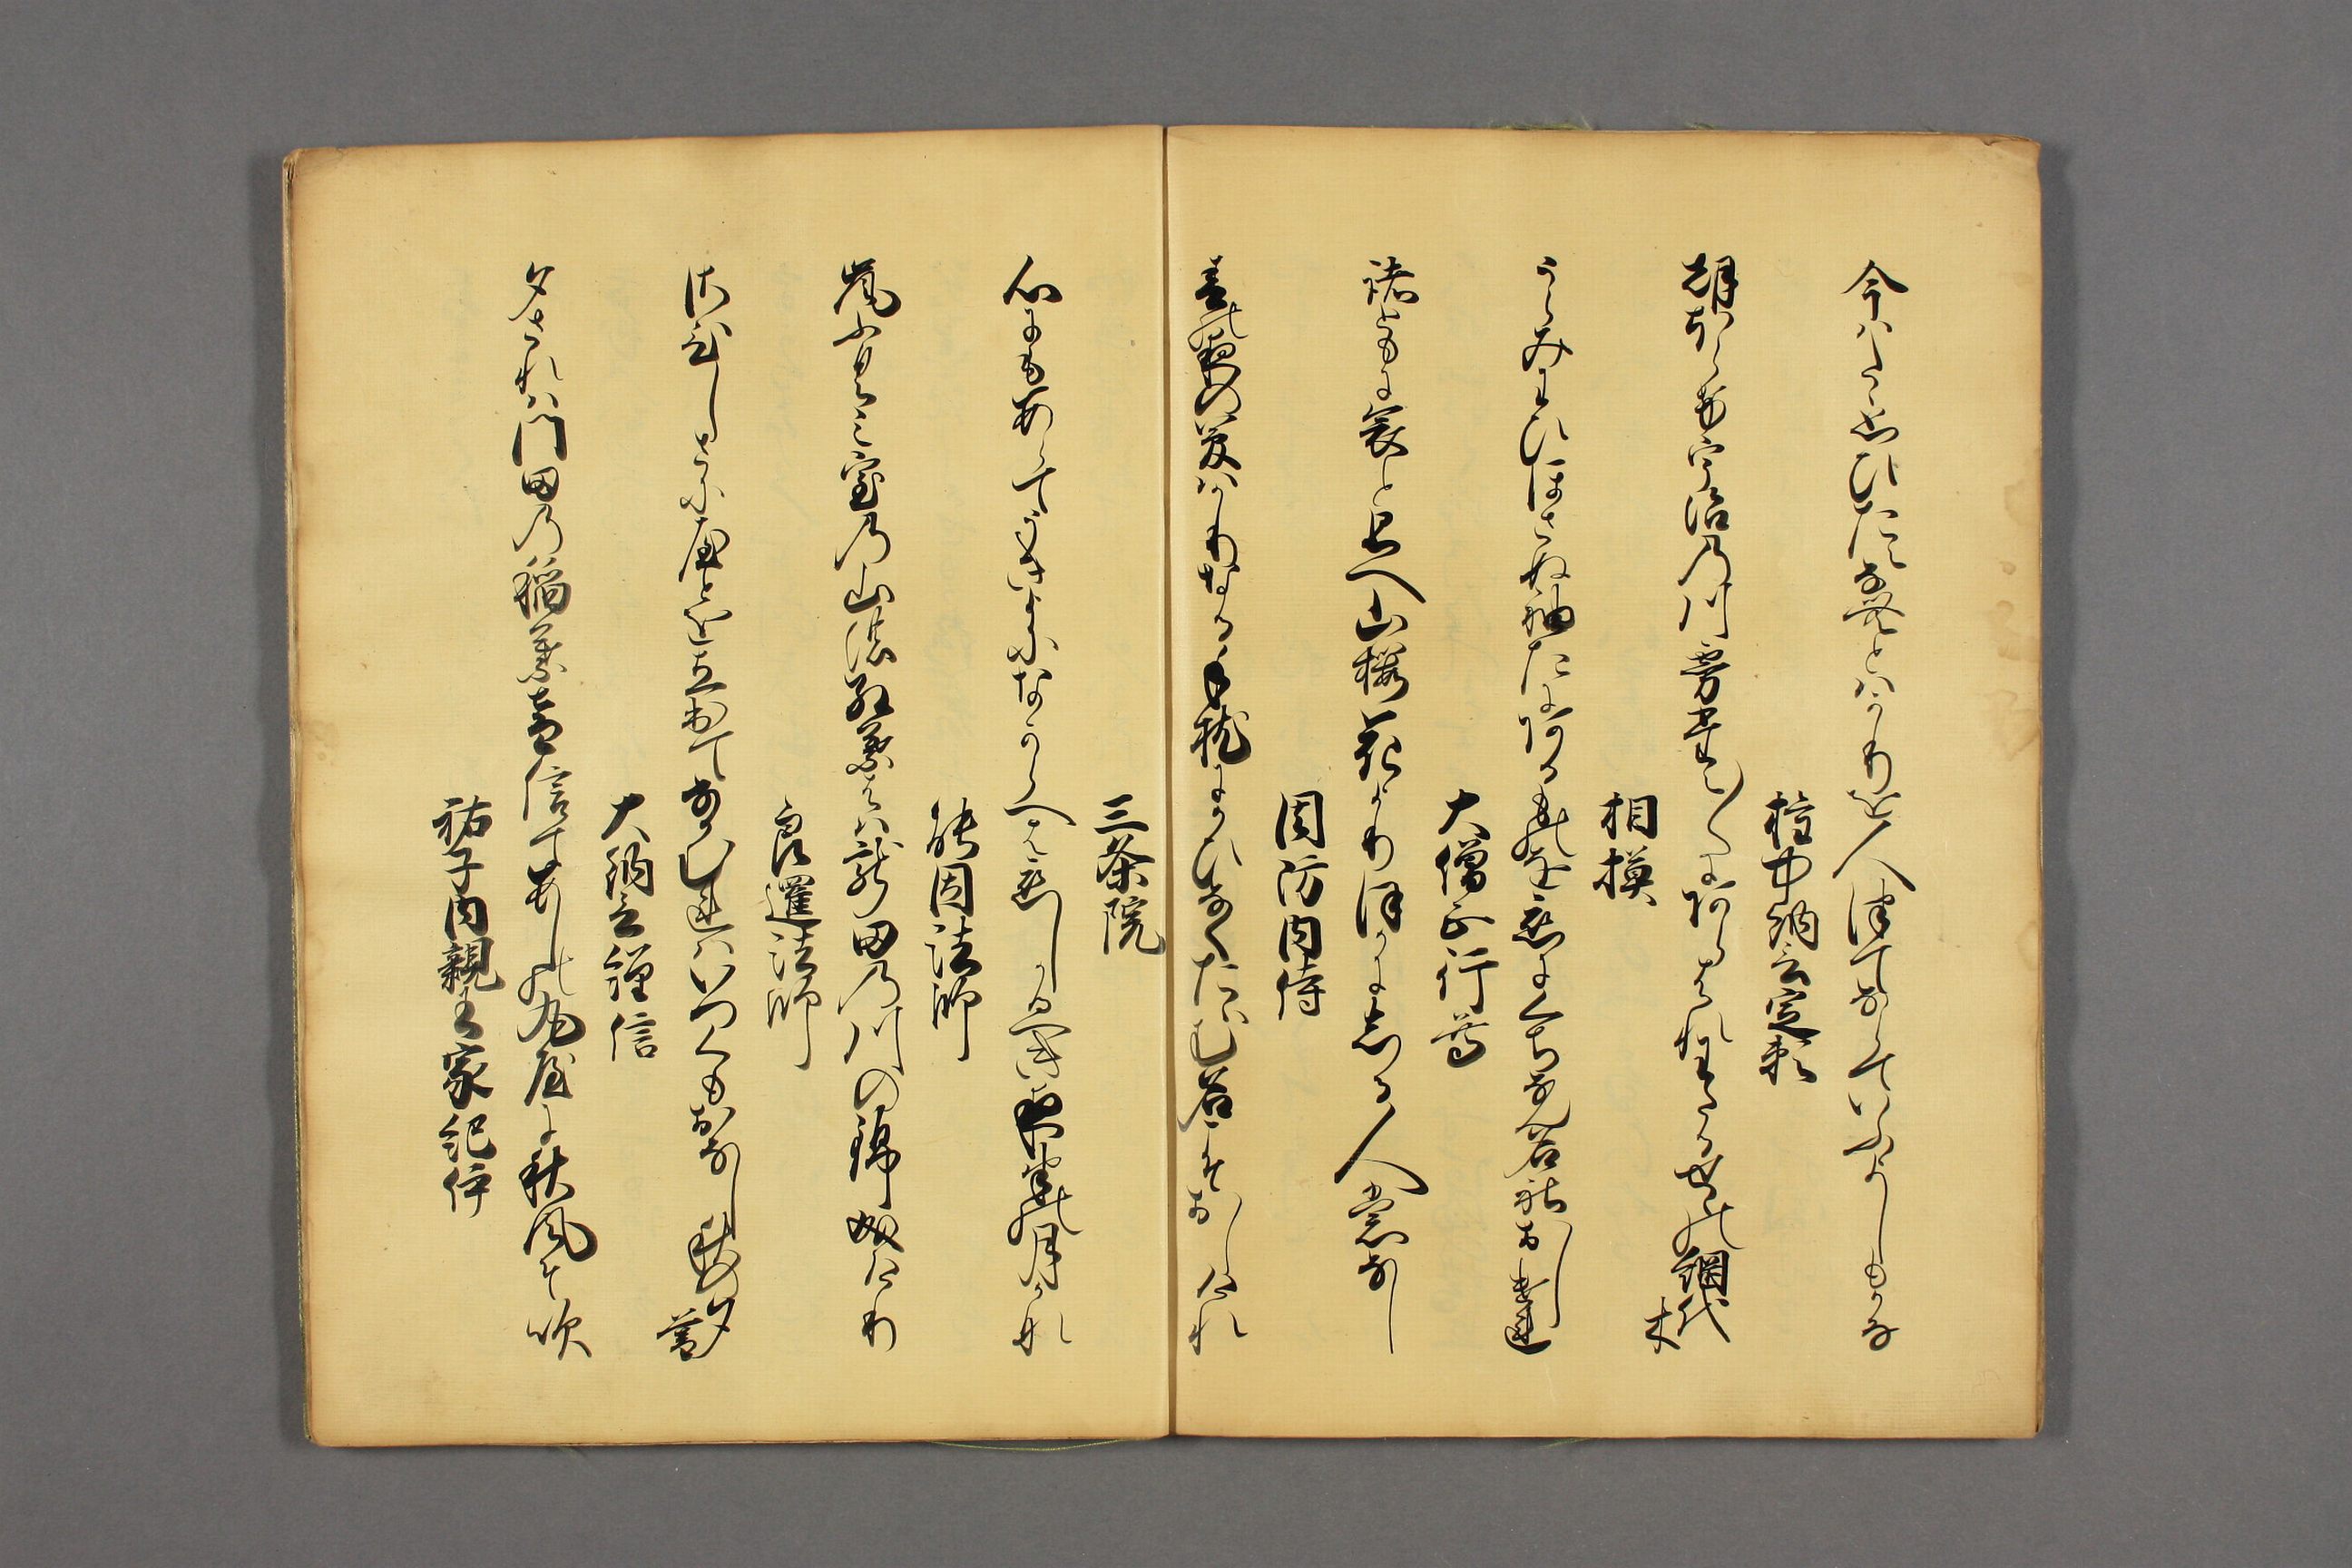 今はたゝ思ひたえなむとはかりを人つてならていふよしもかな
権中納言定頼
朝ほらけ宇治の川霧たえ〳〵にあらはれわたるせゝの網代木
相摸
うらみわひほさぬ袖たにある物を恋にくちなん名社おしけれ
大僧正行尊
諸ともに哀と思へ山桜花よりほかにしる人もなし
周防内侍
春の夜の夢はかりなる手枕にかひなくたゝむ名こそおしけれ
三条院
心にもあらてうき世になからへは恋しかるへき夜半の月かな
能因法師
嵐ふくみ室の山のもみち葉は龍田の川の錦なりけり
良暹法師
さひしさに宿を立出てなかむれはいつくもおなし秋の夕暮
大納言経信
夕されは門田の稲葉音信てあしの丸屋に秋風そ吹
祐子内親王家紀伊